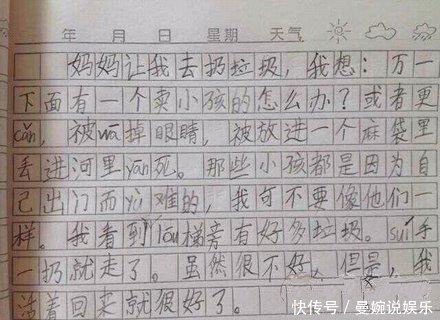 年 月 日 星期 天气
妈妈让我去扔垃圾，我想：万一
下面有一个卖小孩的怎么办？或者更
cǎn，被wā掉眼睛，被放进一个麻袋里
丢进河里yān死。那些小孩都是因为自
己出门而yù难的，我可不要像他们一
样。我看到lou梯旁有好多垃圾。suí手
一扔就走了。虽然很不好，但是，我
活着回来就很好了。
快传号／曼婉说娱乐